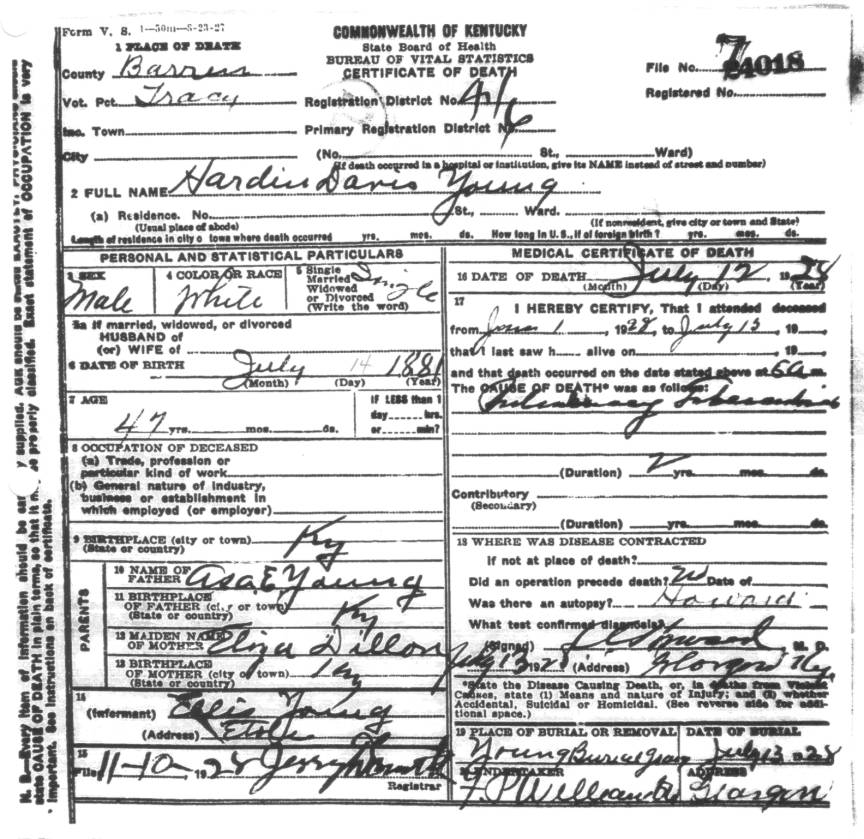 Form V. S. 1-50m-5-23-27
COMMONWEALTH OF KENTUCKY
State Board of Health
BUREAU OF VITAL STATISTICS
CERTIFICATE OF DEATH
File No. 24018
Registered No.
1 PLACE OF DEATH
County Barren
Vot. Pct. Tracy
Registration District No.
Inc. Town
Primary Registration District No.
City (No. St., Ward)
(If death occurred in a hospital or institution, give its NAME instead of street and number)
2 FULL NAME Hardin Davis Young
(a) Residence. No. St., Ward.
(Usual place of abode) (If nonresident, give city or town and State)
Length of residence in city o town where death occurred yrs. mos. ds. How long in U. S., if of foreign birth? yrs. mos. ds.
PERSONAL AND STATISTICAL PARTICULARS
3 SEX
Male
4 COLOR OR RACE
White
5 Single
Married
Widowed
or Divorced
(Write the word)
Single
5a If married, widowed, or divorced
HUSBAND of
(or) WIFE of
6 DATE OF BIRTH July 14 1881
(Month) (Day) (Year)
7 AGE
47 yrs. mos. ds.
IF LESS than 1
day hrs.
or min?
8 OCCUPATION OF DECEASED
(a) Trade, profession or
particular kind of work
(b) General nature of industry,
business or establishment in
which employed (or employer)
9 BIRTHPLACE (city or town)
(State or country)
Ky
PARENTS
10 NAME OF
FATHER Asa E Young
11 BIRTHPLACE
OF FATHER (city or town)
(State or country)
Ky
12 MAIDEN NAME
OF MOTHER Eliza Dillon
13 BIRTHPLACE
OF MOTHER (city or town)
(State or country)
Ky
14
(Informant) Ellis Young
(Address)
15
Filed 11-10-, 1928 Jerry
Registrar
MEDICAL CERTIFICATE OF DEATH
16 DATE OF DEATH July 12, 1928
(Month) (Day) (Year)
17
I HEREBY CERTIFY, That I attended deceased
from June 1, 1928, to July 13, 19
that I last saw h alive on , 19
and that death occurred on the date stated above at 6 a m.
The CAUSE OF DEATH* was as follows:
Pulmonary Tuberculosis
(Duration) 2 yrs. mos. ds.
Contributory
(Secondary)
(Duration) yrs. mos. ds.
18 WHERE WAS DISEASE CONTRACTED
if not at place of death?
Did an operation precede death? Date of
Was there an autopsy? Howard
What test confirmed diagnosis?
(Signed) Howard M. D.
July 13 1928 (Address) Glasgow Ky.
*State the Disease Causing Death, or, in deaths from Violent
Causes, state (1) Means and nature of Injury; and (2) whether
Accidental, Suicidal or Homicidal. (See reverse side for addi-
tional space.)
19 PLACE OF BURIAL OR REMOVAL
DATE OF BURIAL
Young July 13 1928
UNDERTAKER
ADDRESS
Glasgow
N. B.—Every item of information should be supplied.
state CAUSE OF DEATH in plain terms, so that it properly classified. Exact statement of OCCUPATION is very
important. See instructions on back of certificate.